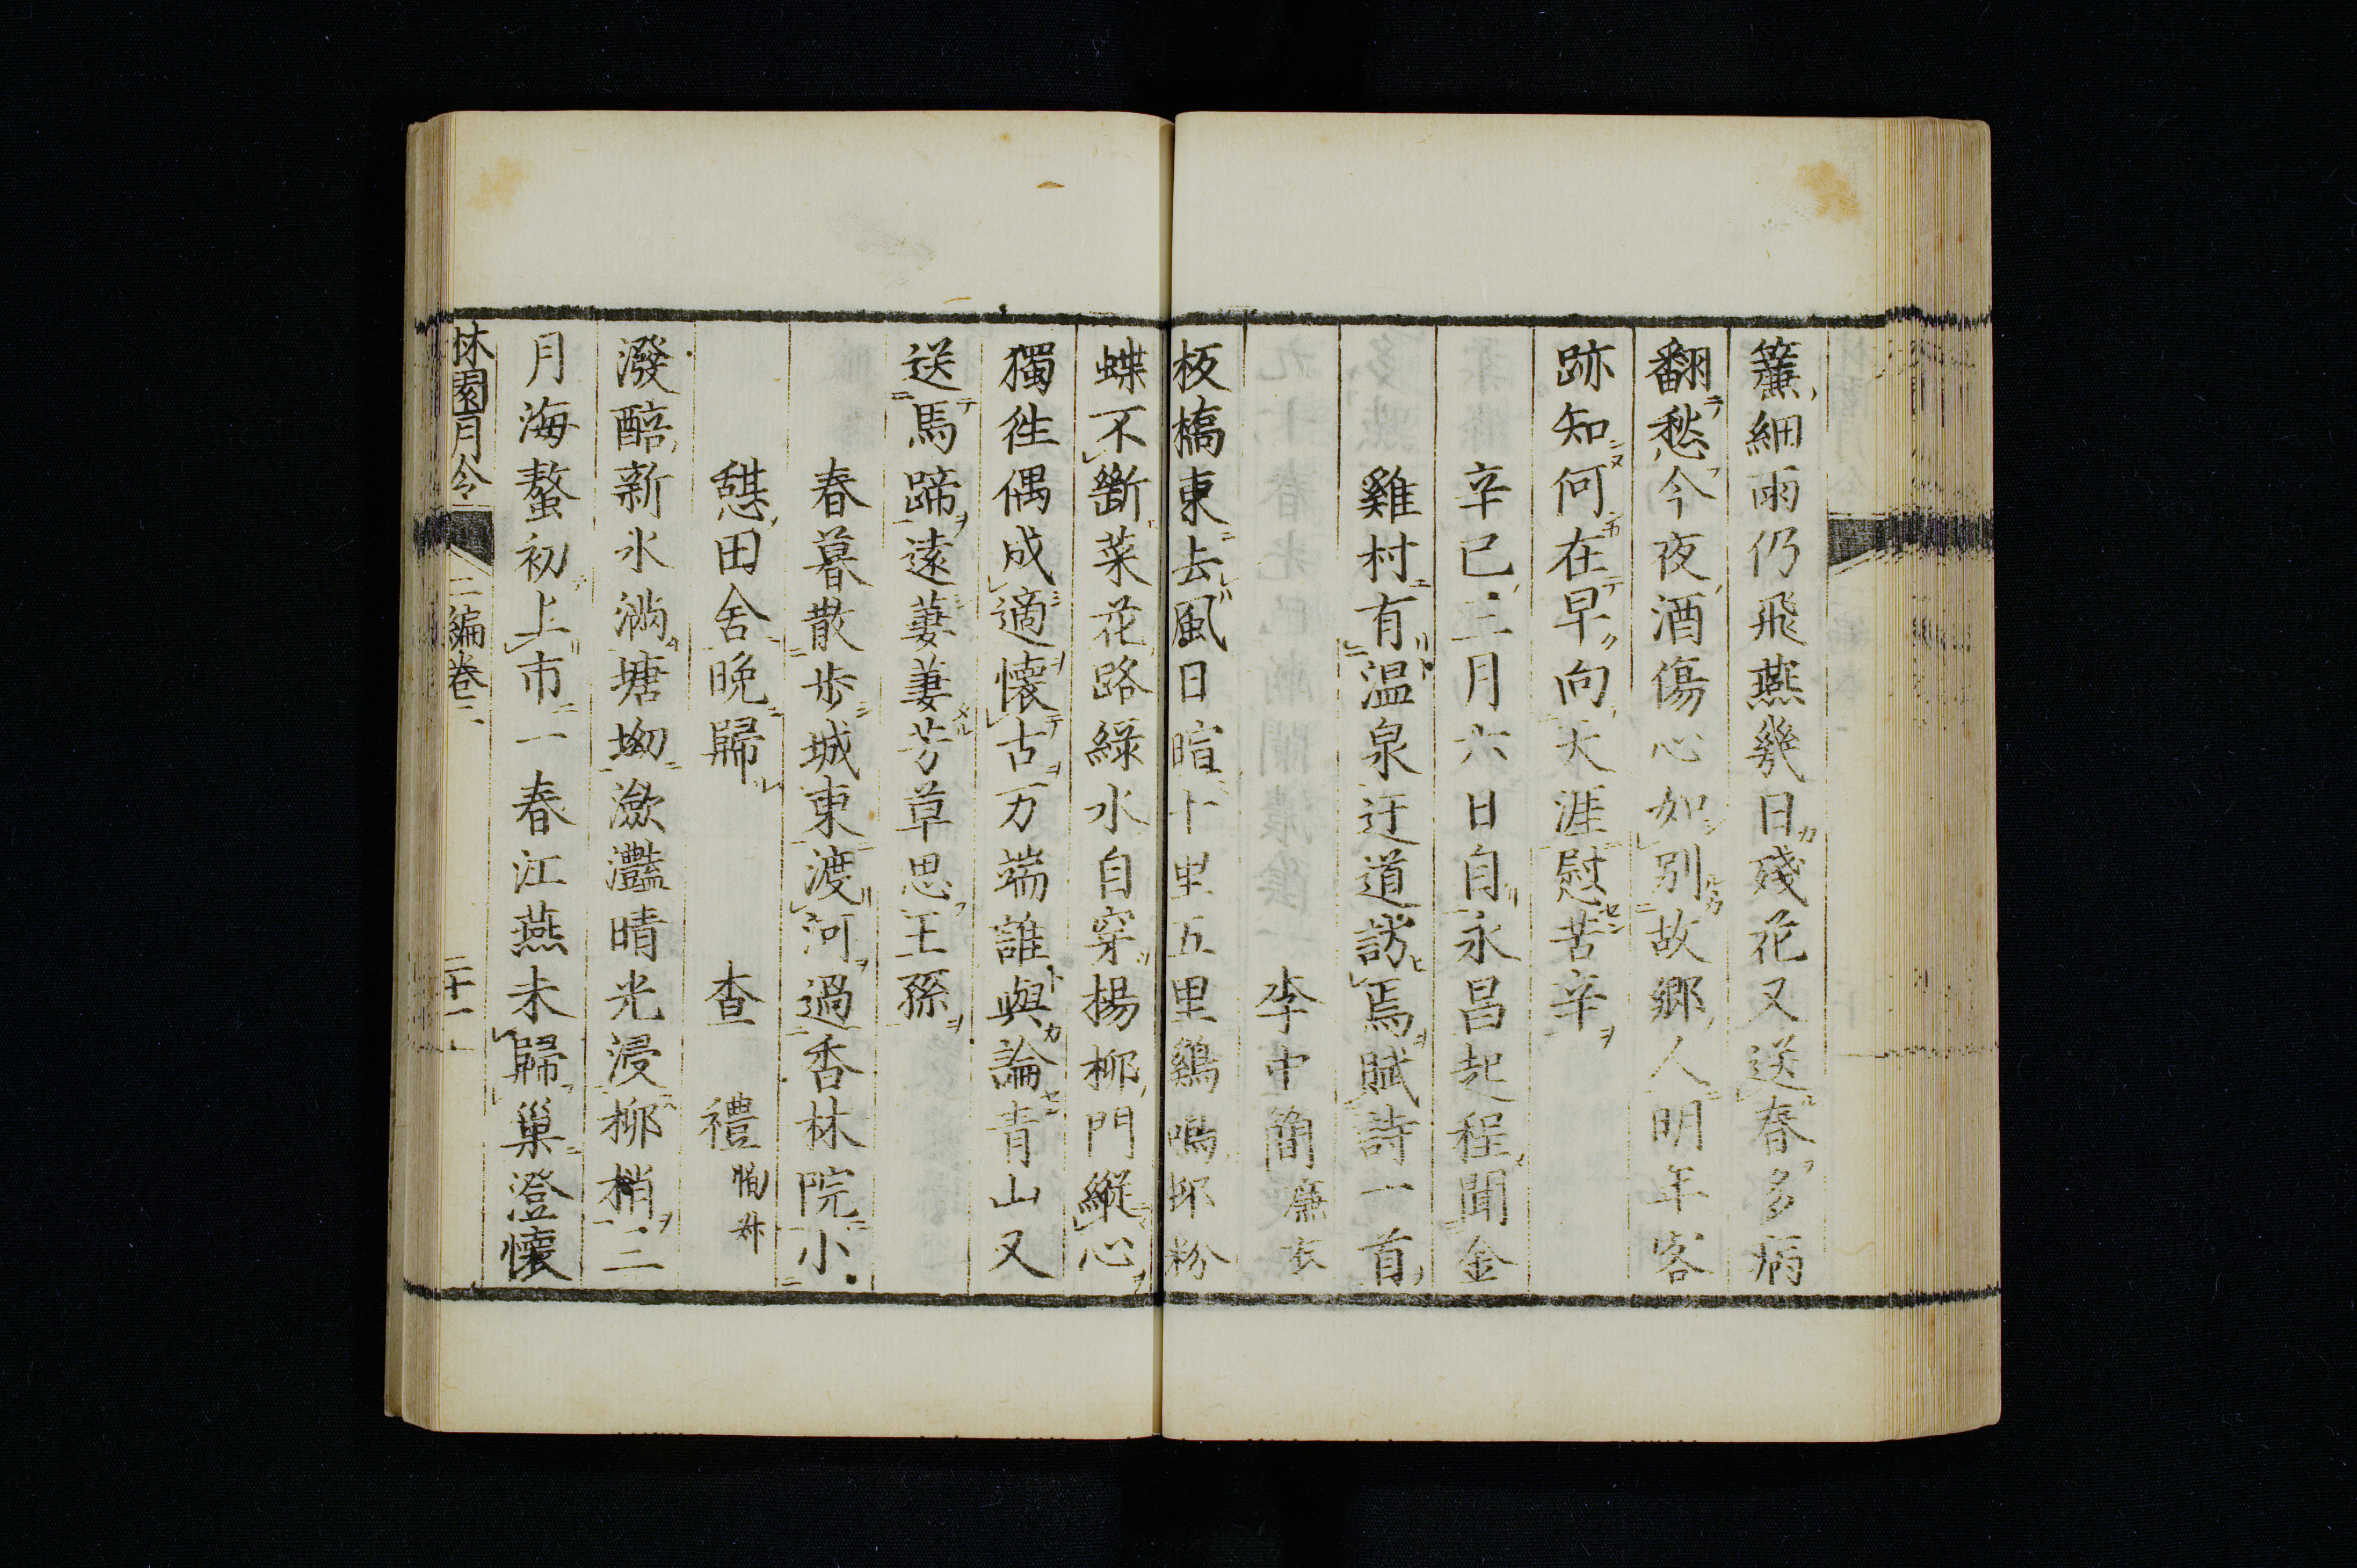 簾細雨仍飛燕幾日殘花又送春多病
翻愁今夜酒傷心如別故鄉人明年客
跡知何在早向天涯慰苦辛
辛巳三月六日自永昌起程聞金
雞村有温泉迂道訪焉賦詩一首
李中簡廉衣
板橋東去風日暄十里五里鷄鳴邨粉
蝶不斷菜花路綠水自穿楊柳門縱心
獨徃偶成適懷古万端誰與論青山又
送馬蹄遠萋萋芳草思王孫
春暮散步城東渡河過香林院小
憇田舍晚歸
查禮恂叔
潑醅新水滿塘坳瀲灩晴光浸柳梢二
月海螯初上市一春江燕未歸巢澄懷
林園月令 二編卷二 二十一